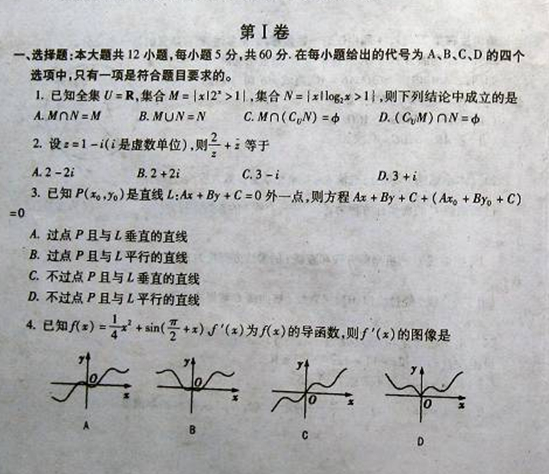 第Ⅰ卷
一、选择题:本大题共12小题,每小题5分,共60分.在每小题给出的代号为A、B、C、D的四个
选项中,只有一项是符合题目要求的。
1. 已知全集U=R,集合M={x|2ˣ>1},集合N={x|log₂x>1},则下列结论中成立的是
A. M∩N=M B. M∪N=N C. M∩(C_UN)=ϕ D. (C_UM)∩N=ϕ
2. 设z=1-i(i是虚数单位),则2/z+z̄等于
A. 2-2i B. 2+2i C. 3-i D. 3+i
3. 已知P(x₀,y₀)是直线L:Ax+By+C=0外一点,则方程Ax+By+C+(Ax₀+By₀+C)
=0
A. 过点P且与L垂直的直线
B. 过点P且与L平行的直线
C. 不过点P且与L垂直的直线
D. 不过点P且与L平行的直线
4. 已知f(x)=1/4x²+sin(π/2+x),f′(x)为f(x)的导函数,则f′(x)的图像是
y y y y
O O O O
x x x x
A B C D